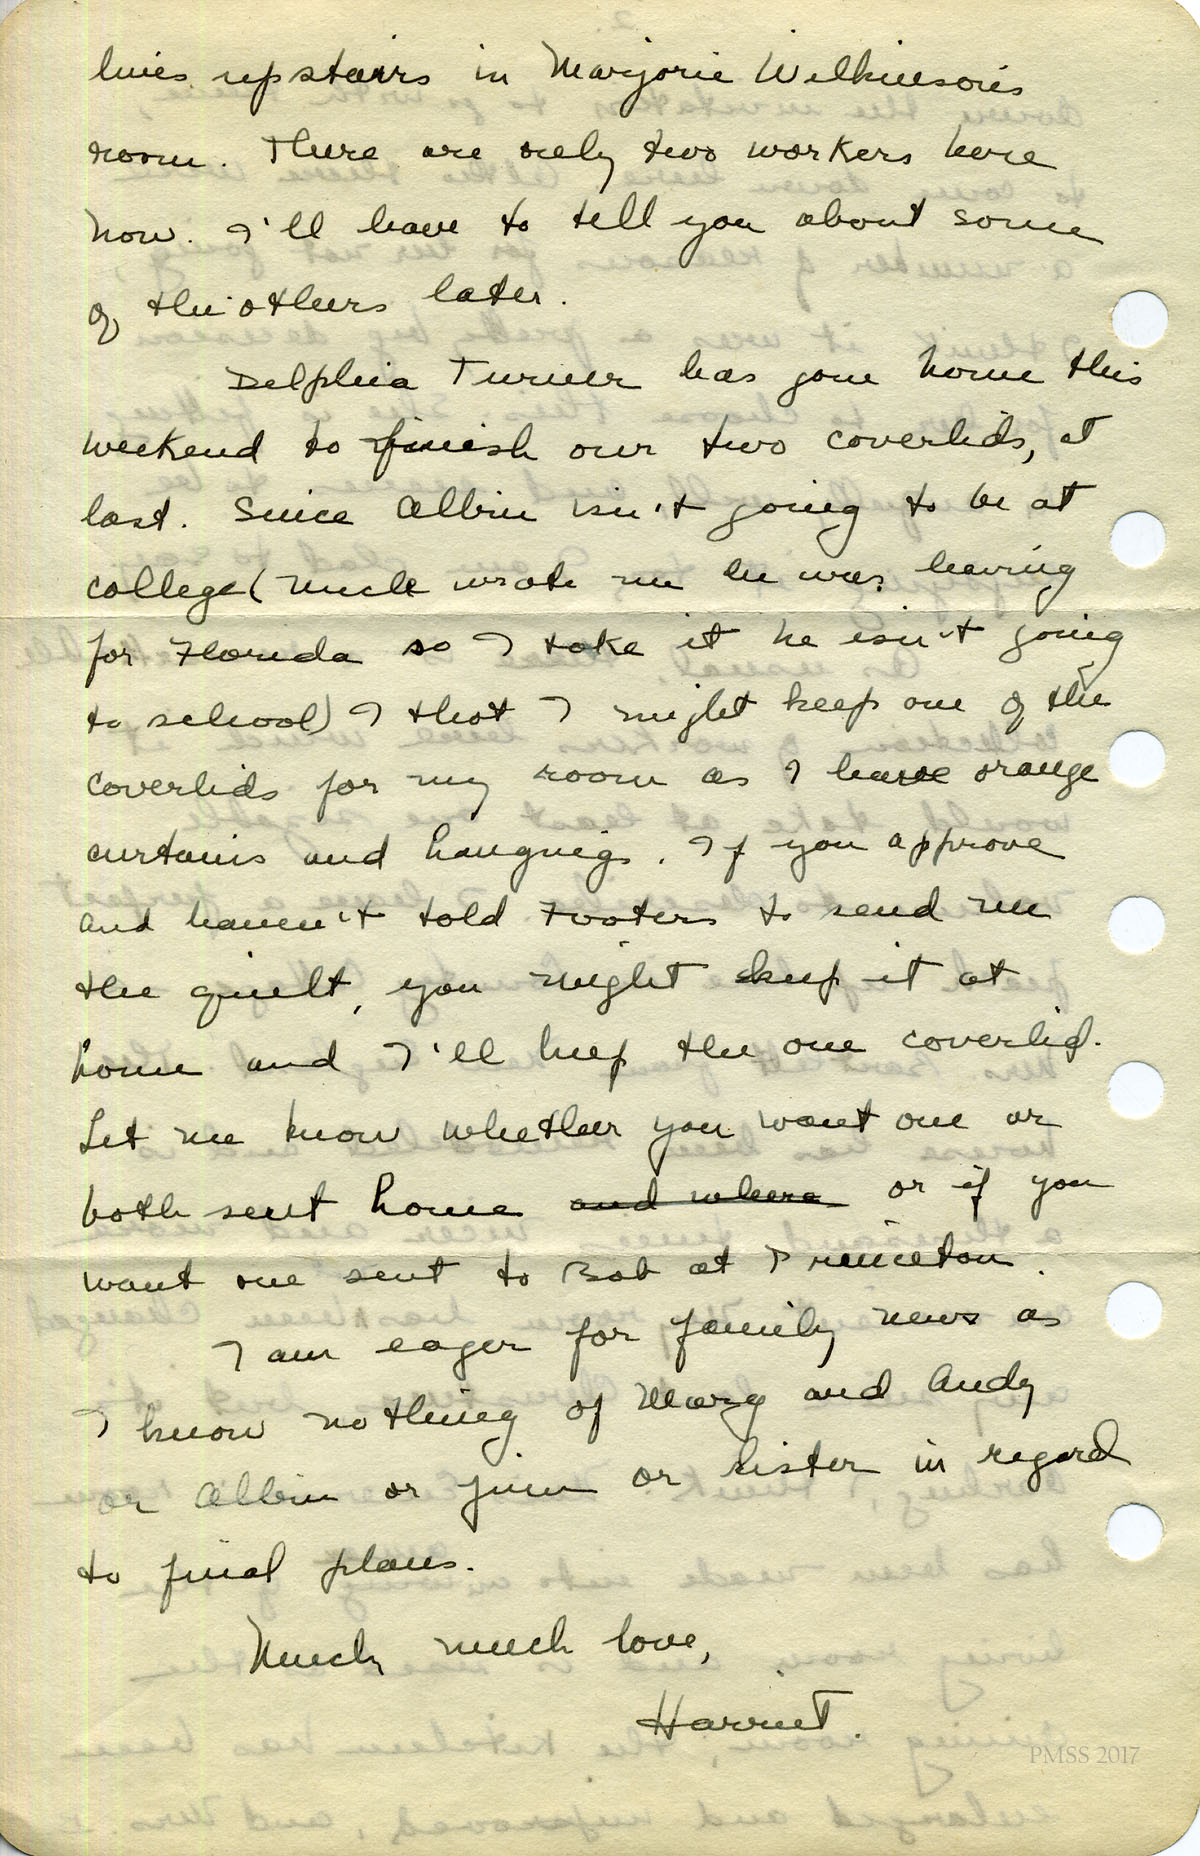 lives upstairs in Marjorie Wilkinson's
room. There are only two workers here
now. I'll have to tell you about some
of the others later.
Delphia Turner has gone home this
weekend to finish our two coverlids, at
last. Since Albin isn't going to be at
college (Uncle wrote me he was leaving
for Florida so I take it he isn't going
to school) I thot I might keep one of the
coverlids for my room as I have orange
curtains and hangings. If you approve
and haven't told Footers to send me
the quilt, you might keep it at
home and I'll keep the one coverlid.
Let me know whether you want one or
both sent home and where or if you
want one sent to Bob at Princeton.
I am eager for family news as
I know nothing of Mary and Andy
or Albin or Jim or Sister in regard
to final plans.
Much, much love,
Harriet.
PMSS 2017